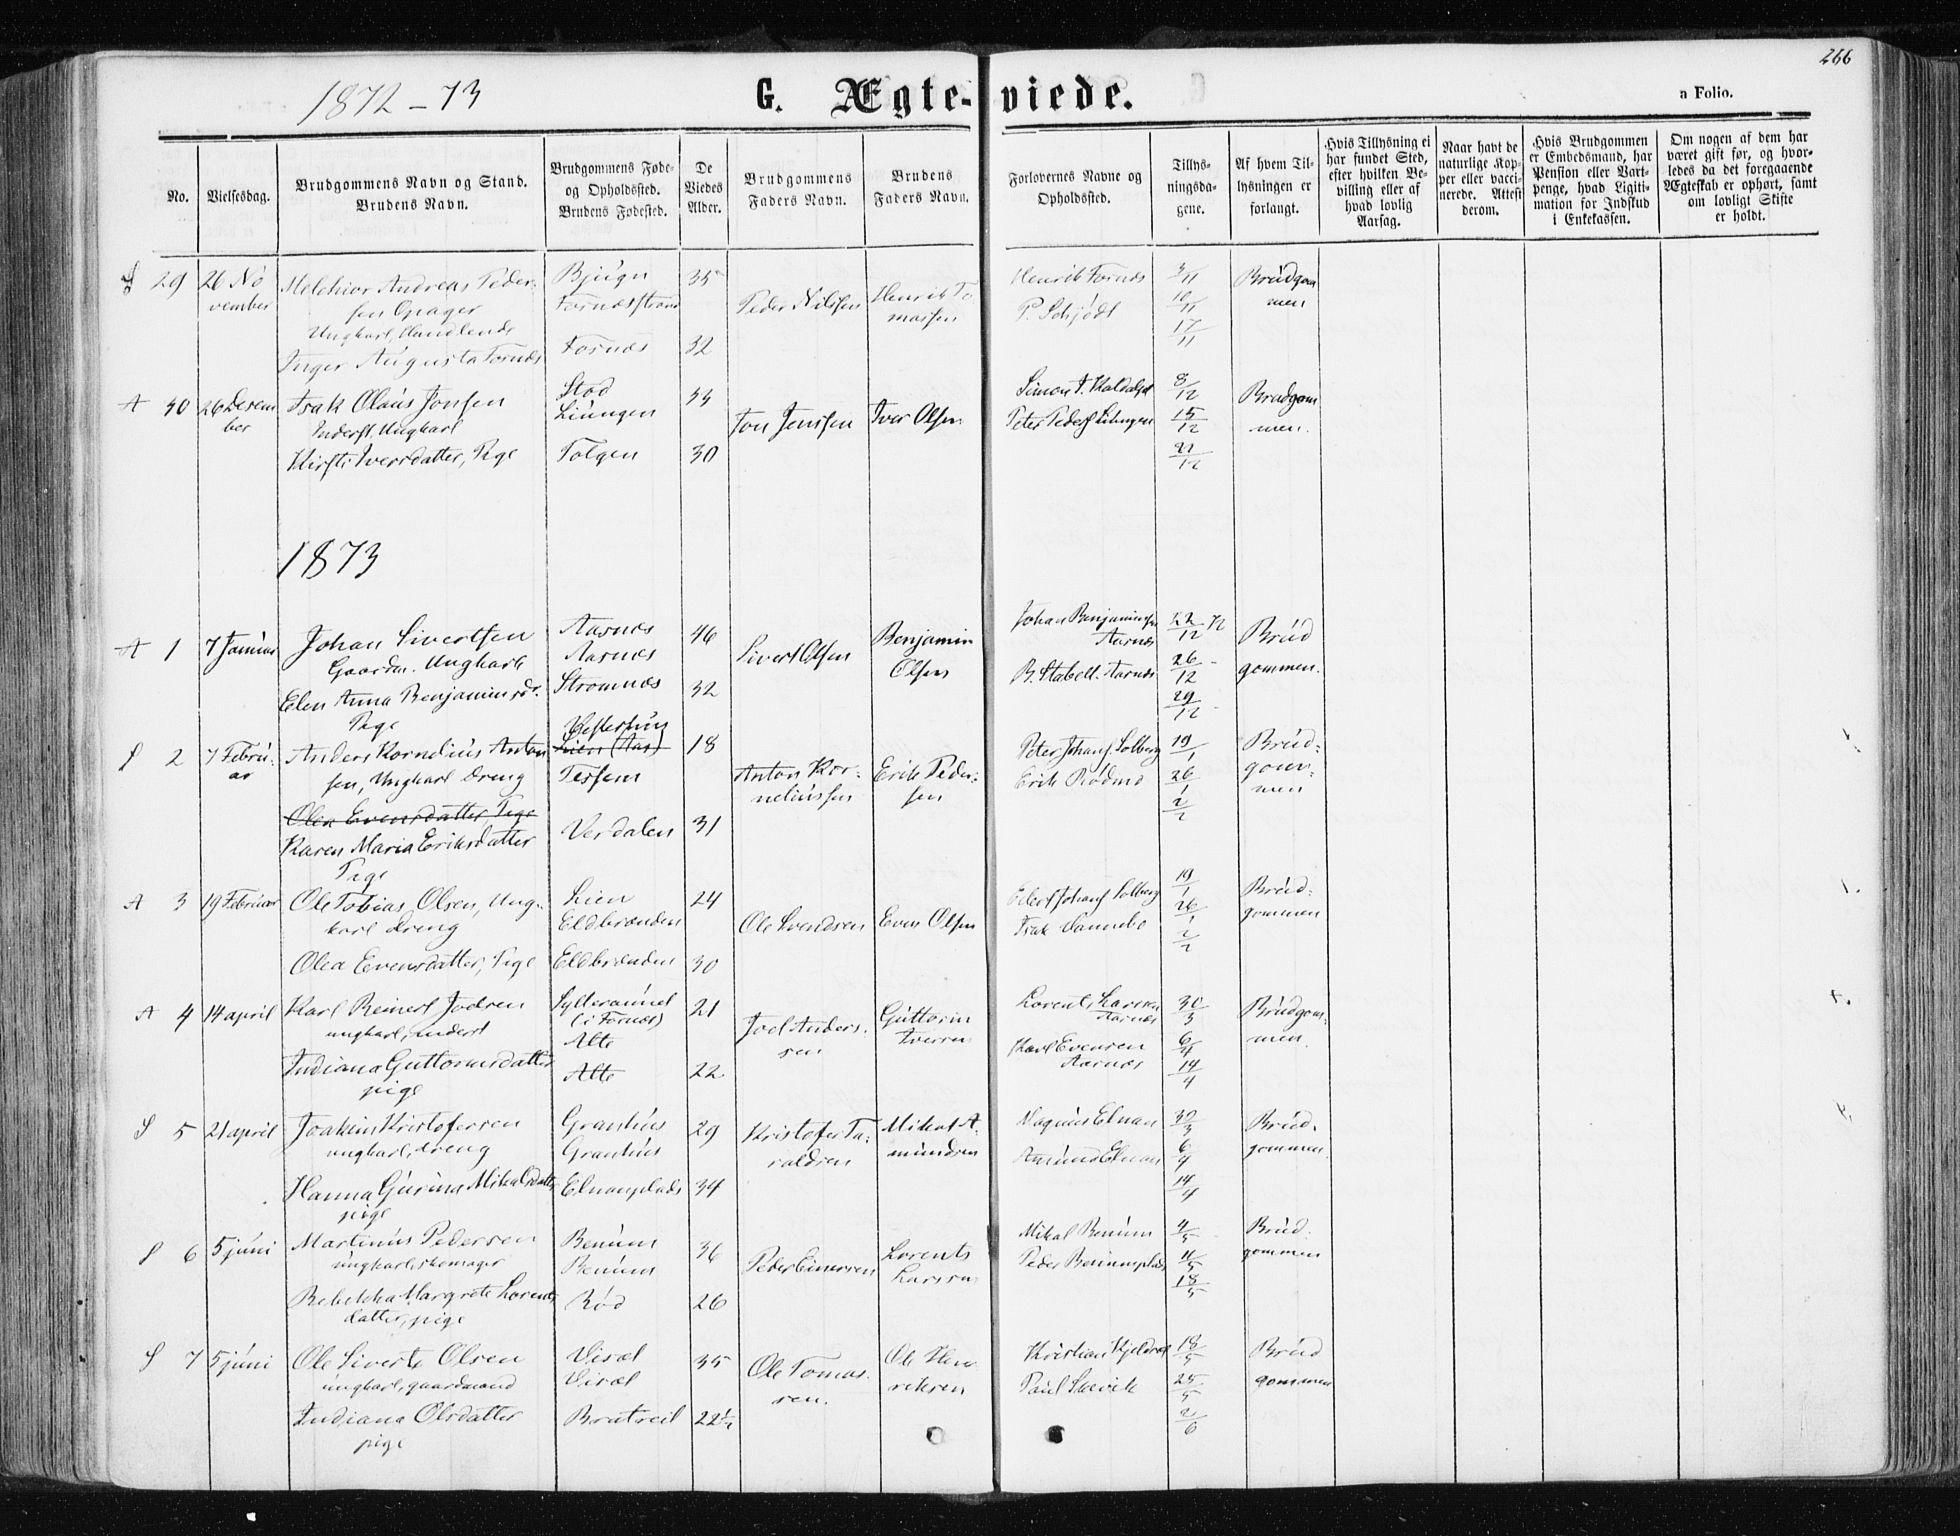 266
1872-73
G. Ægte-viede.
a Folio.
No.
Vielsesdag.
Brudgommens Navn og Stand.
Brudens Navn.
Brudgommens Føde-
og Opholdssted.
Brudens Fødested.
De
Viedes
Alder.
Brudgommens
Faders Navn.
Brudens
Faders Navn.
Forlovernes Navne og
Opholdssted.
Tillys-
ningsda-
gene.
Af hvem Til-
lysningen er
forlangt.
Hvis Tillysning ei
har fundet Sted,
efter hvilken Be-
villing eller af
hvad lovlig
Aarsag.
Naar havt de
naturlige Kop-
per eller vacci-
nerede. Attest
derom.
Hvis Brudgommen
er Embedsmand, har
Pension eller Vart-
penge, hvad Ligiti-
mation for Indskud
i Enkekassen.
Om nogen af dem har
været gift før, og hvor-
ledes da det foregaaende
Ægteskab er ophørt, samt
om lovligt Skifte
er holdt.
S 29 26 No
vember
Melchior Andreas Peder-
sen
Ungkarl, Handlende
Inger Augusta Fornæs
Bjugn
Fornæsstrand
Fornæs
35
32
Peder Nilssen
Henrik To
massen
Henrik Fornæs
P. Schjødt
3/11
10/11
17/11
Brudgom
men
A 30 26 Desem
ber
Isak Olaus Jonsen
Inderst, Ungkarl
Kirsti Iversdatter, Pige
Stod
Liungen
Tolgen
33
30
Jon Jenssen
Iver Olsen
Peter Peders Liungen
8/12
15/12
22/12
Brudgom
men.
1873
A 1 7 Januar
Johan Sivertsen
Gaardm. Ungkarl
Elen Anna Benjaminsdr.
Pige
Aarnæs
Aarnæs
Strømnæs
46
32
Sivert Olsen
Benjamin
Olsen
Johan Benjaminsen
Aarnæs
B. Stabell. Aarnæs
22/12 72
26/12
29/12
Brud
gommen.
S 2 7 Febru-
ar
Anders Kornelius Anton
sen, Ungkarl dreng
Olea Evensdatter, Pige
Karen Maria Eriksdatter
Pige
Lien (Aas)
Tessem
Verdalen
18
31
Anton Kor-
neliussen
Erik Peder-
sen
Peter Johans Solberg
Erik Rødmo
19/1
26/1
2/2
Brud-
gom-
men
A 3 19 Februar
Ole Tobias Olsen, Ung-
karl dreng
Olea Evensdatter, Pige
Lien
Eldbrænden
Eldbrænden
24
30
Ole Svendsen
Even Olsen
Edert Johans Solberg
Isak Vannebo
19/1
26/1
2/2
Brud-
gommen
A 4 14 april
Karl Reinert Joelsen
ungkarl, inderst
Indiana Guttormsdatter
pige
(i Fornæs)
Alte
Alte
21
22
Joel Anders-
sen
Guttorm
Iversen
Lorents Larssen
Aarnæs
Karl Evensen
Aarnæs
30/3
6/4
14/4
Brudgom-
men.
S 5 21 april
Joakim Kristofersen
ungkarl, dreng
Hanna Gurina Mikalsdatter
pige
Granhus
Granhus
Elnanplads
29
34
Kristofer Ta-
raldsen
Mikal A-
mundsen
Magnus Elnan
Amund Elnan
30/3
6/4
14/4
Brud-
gommen.
S 6 5 juni
Martinus Pedersen
ungkarl, skomager
Rebekka Margrete Lorents
datter, pige
Benum
Benum
Rød
36
26
Peder Einersen
Lorents
Larssen
Mikal Benum
Peder Benumsplads
4/5
11/5
18/5
Brud-
gommen
S 7 5 juni
Ole Siverts Olsen
ungkarl, gaardmand
Indiana Olsdatter
pige
Viset
Viset
Bratreit
35
22½
Ole Tomas-
sen.
Ole Hen-
riksen
Kristian Kjeldset
Paul Skevik
18/5
25/5
2/6
Brud
gommen